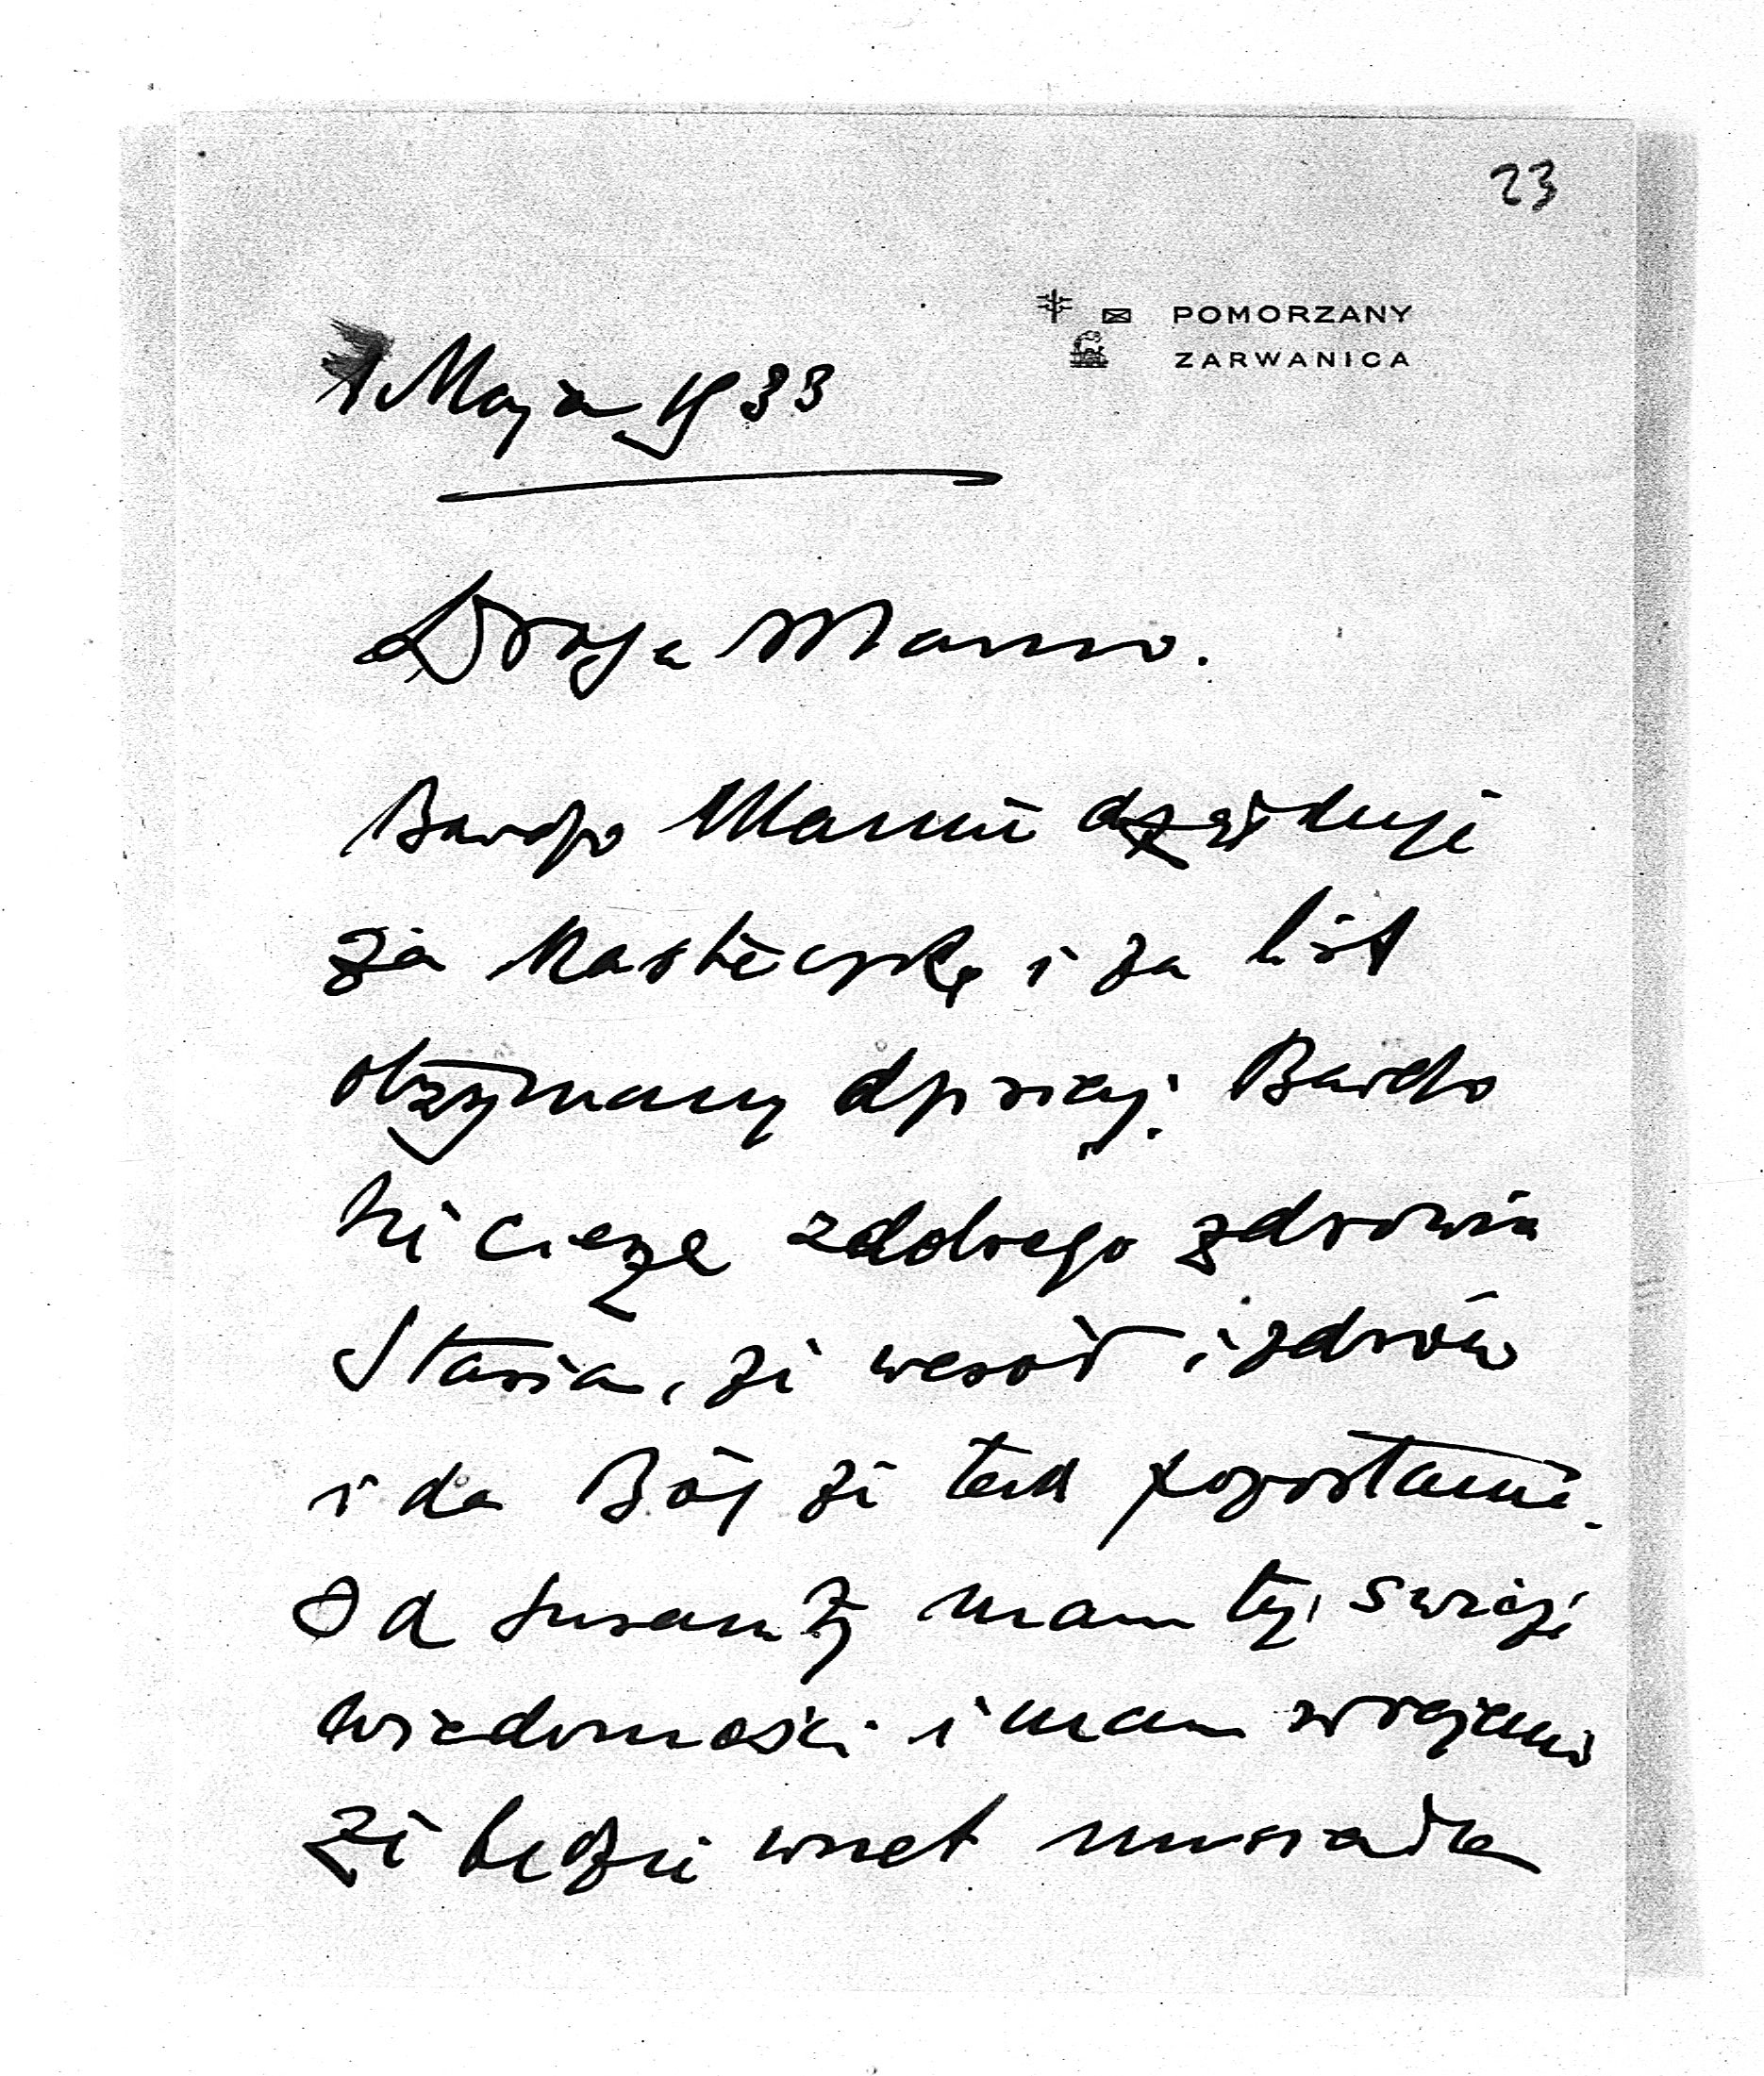 23
POMORZANY
ZARWANICA
1 Maja 1933
Droga Mamo.
Bardzo Mamie dziękuję
za karteczkę i za list
otrzymany dzisiaj. Bardzo
mi cieszę z dobrego zdrowia
Stasia, że wesół i zdrów
i da Bóg że tak pozostanie.
Od Susanny mam też świeże
wiadomości i mam wrażenie
że będzie wnet musiała